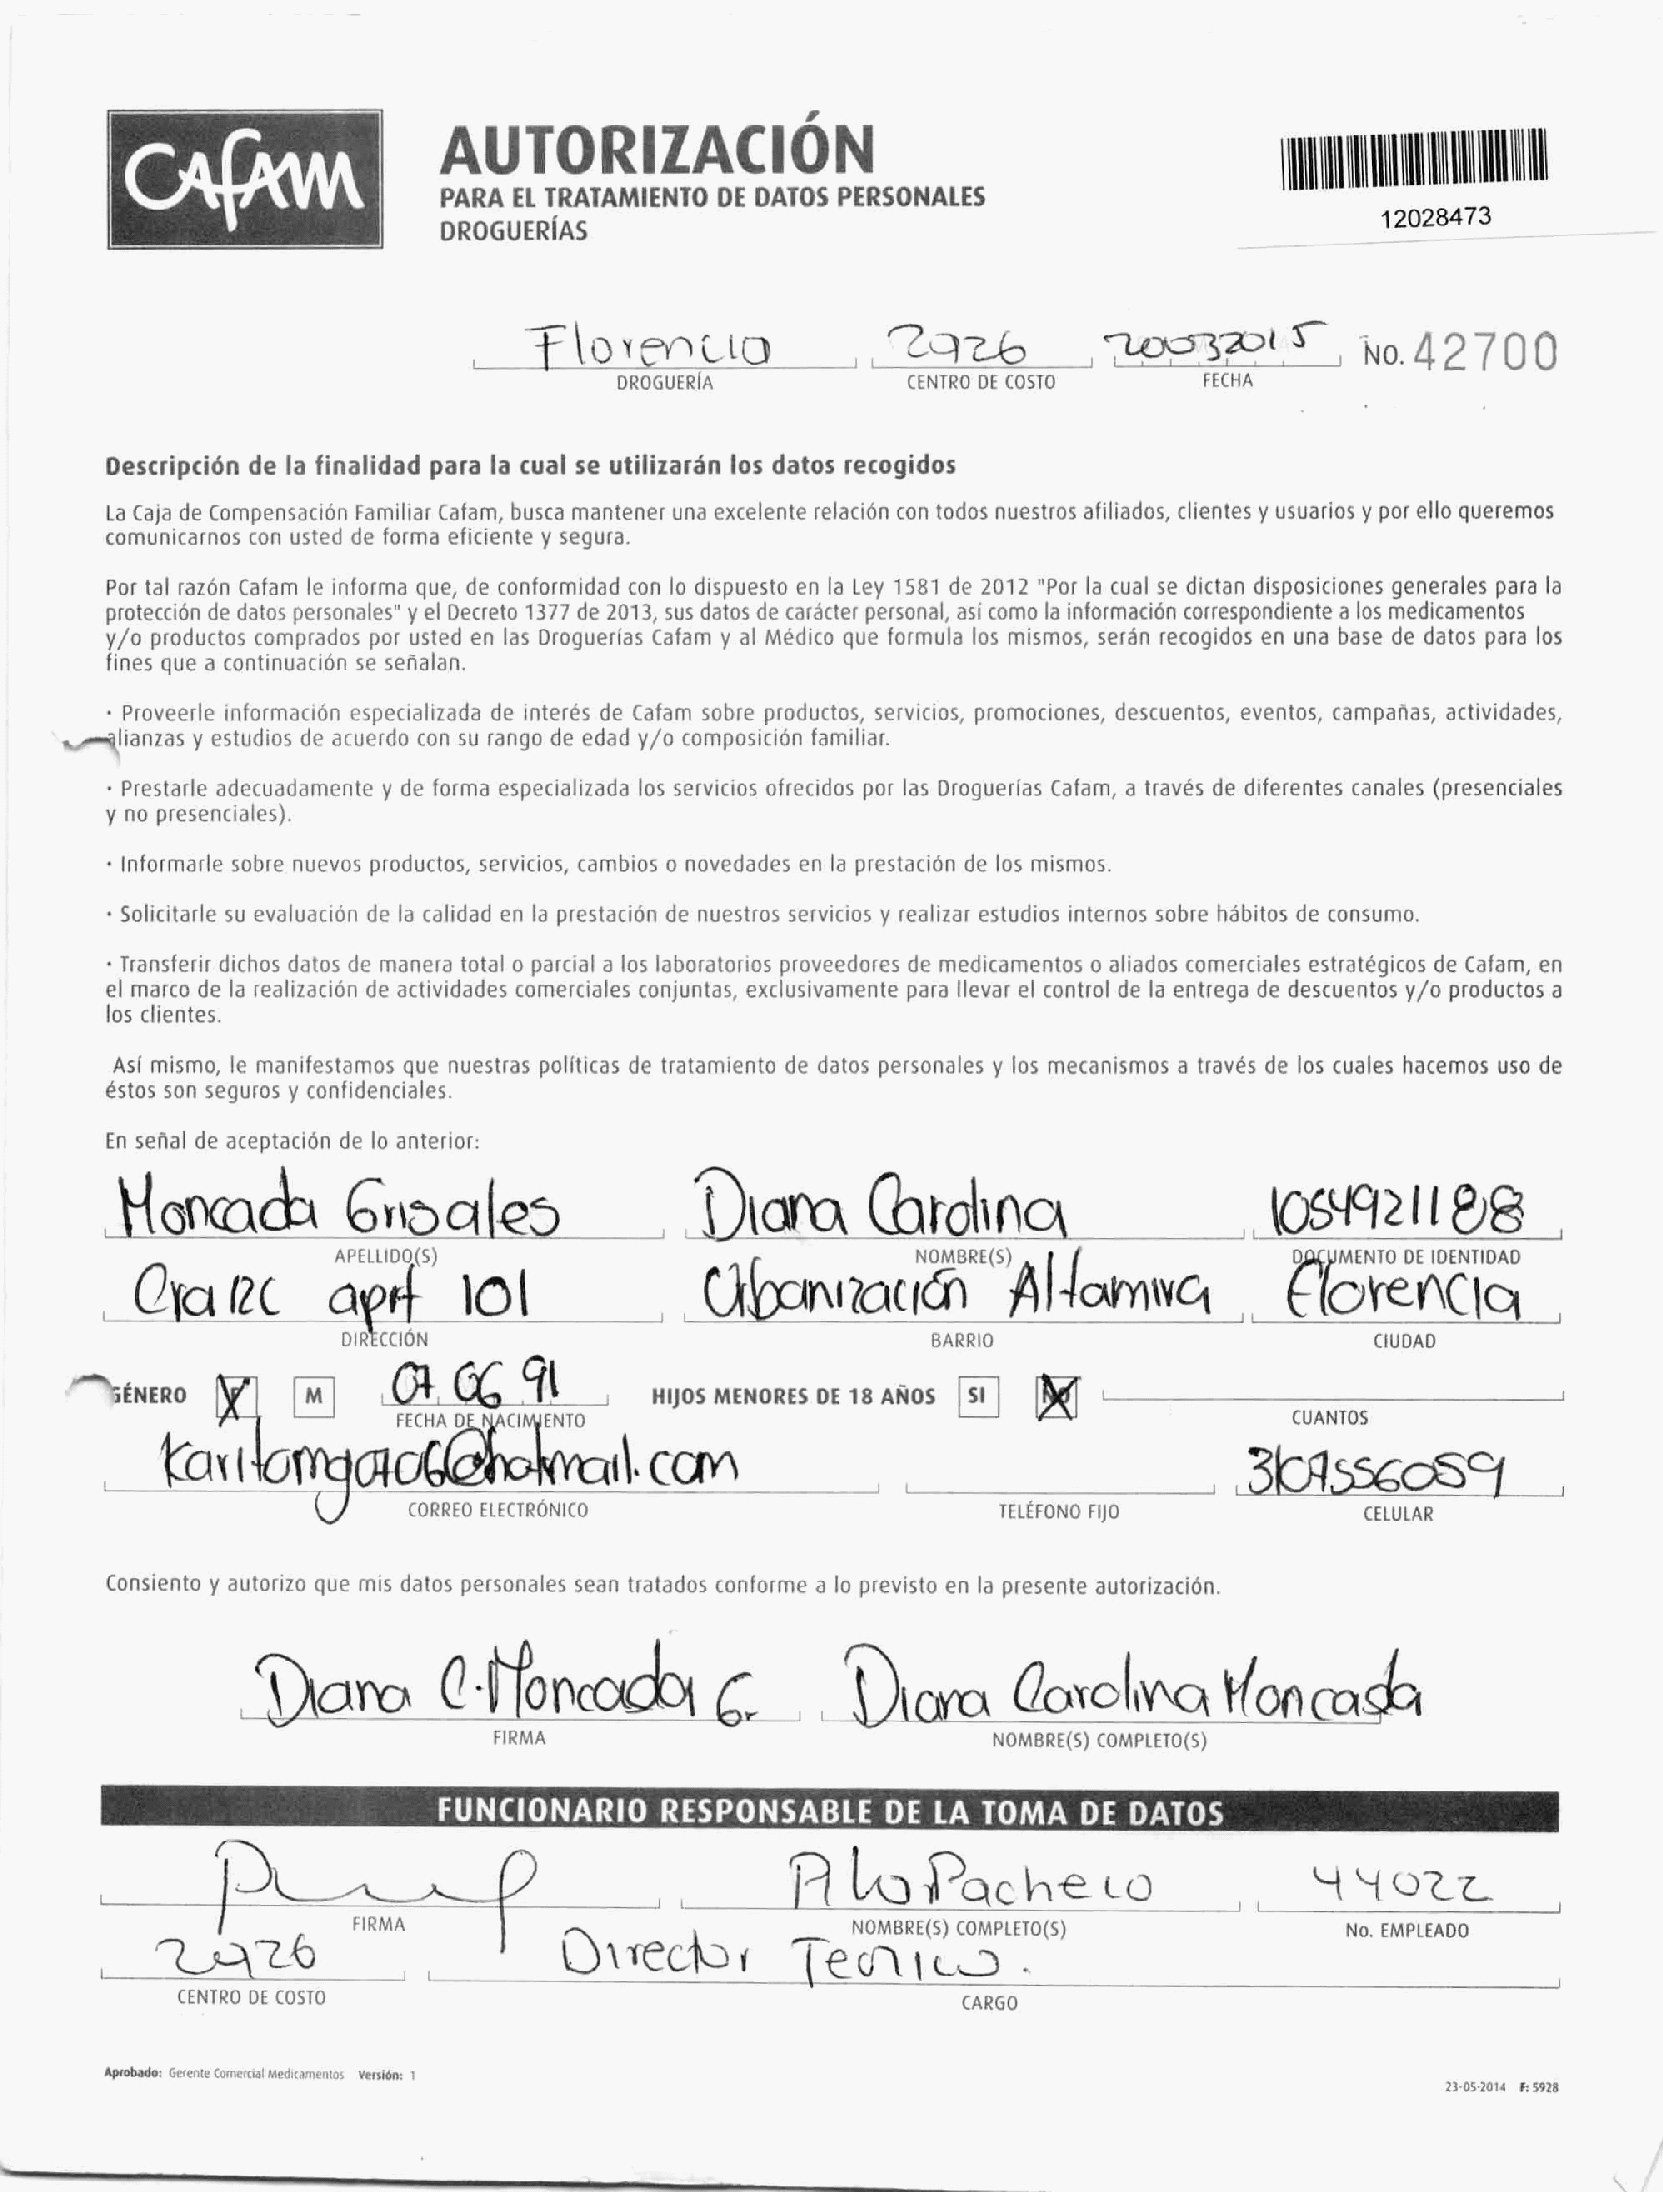 CAFAM
AUTORIZACIÓN
PARA EL TRATAMIENTO DE DATOS PERSONALES
DROGUERÍAS
12028473
Florencia 2926 20032015 No. 42700
DROGUERÍA CENTRO DE COSTO FECHA
Descripción de la finalidad para la cual se utilizarán los datos recogidos
La Caja de Compensación Familiar Cafam, busca mantener una excelente relación con todos nuestros afiliados, clientes y usuarios y por ello queremos
comunicarnos con usted de forma eficiente y segura.
Por tal razón Cafam le informa que, de conformidad con lo dispuesto en la Ley 1581 de 2012 "Por la cual se dictan disposiciones generales para la
protección de datos personales" y el Decreto 1377 de 2013, sus datos de carácter personal, así como la información correspondiente a los medicamentos
y/o productos comprados por usted en las Droguerías Cafam y al Médico que formula los mismos, serán recogidos en una base de datos para los
fines que a continuación se señalan.
· Proveerle información especializada de interés de Cafam sobre productos, servicios, promociones, descuentos, eventos, campañas, actividades,
alianzas y estudios de acuerdo con su rango de edad y/o composición familiar.
· Prestarle adecuadamente y de forma especializada los servicios ofrecidos por las Droguerías Cafam, a través de diferentes canales (presenciales
y no presenciales).
· Informarle sobre nuevos productos, servicios, cambios o novedades en la prestación de los mismos.
· Solicitarle su evaluación de la calidad en la prestación de nuestros servicios y realizar estudios internos sobre hábitos de consumo.
· Transferir dichos datos de manera total o parcial a los laboratorios proveedores de medicamentos o aliados comerciales estratégicos de Cafam, en
el marco de la realización de actividades comerciales conjuntas, exclusivamente para llevar el control de la entrega de descuentos y/o productos a
los clientes.
Así mismo, le manifestamos que nuestras políticas de tratamiento de datos personales y los mecanismos a través de los cuales hacemos uso de
éstos son seguros y confidenciales.
En señal de aceptación de lo anterior:
Moncada Grisales Diana Carolina 1054921188
APELLIDO(S) NOMBRE(S) DOCUMENTO DE IDENTIDAD
Cra 12C aprt 101 Urbanización Altamira Florencia
DIRECCIÓN BARRIO CIUDAD
GÉNERO X M 07 06 91 HIJOS MENORES DE 18 AÑOS SI X
FECHA DE NACIMIENTO CUANTOS
karitomg0706@hotmail.com 3107556059
CORREO ELECTRÓNICO TELÉFONO FIJO CELULAR
Consiento y autorizo que mis datos personales sean tratados conforme a lo previsto en la presente autorización.
Diana C. Moncada G. Diana Carolina Moncada
FIRMA NOMBRE(S) COMPLETO(S)
FUNCIONARIO RESPONSABLE DE LA TOMA DE DATOS
Pacheco 44022
FIRMA NOMBRE(S) COMPLETO(S) No. EMPLEADO
2926 Director Tecnico.
CENTRO DE COSTO CARGO
Aprobado: Gerente Comercial Medicamentos Versión: 1
23-05-2014 F: 5928